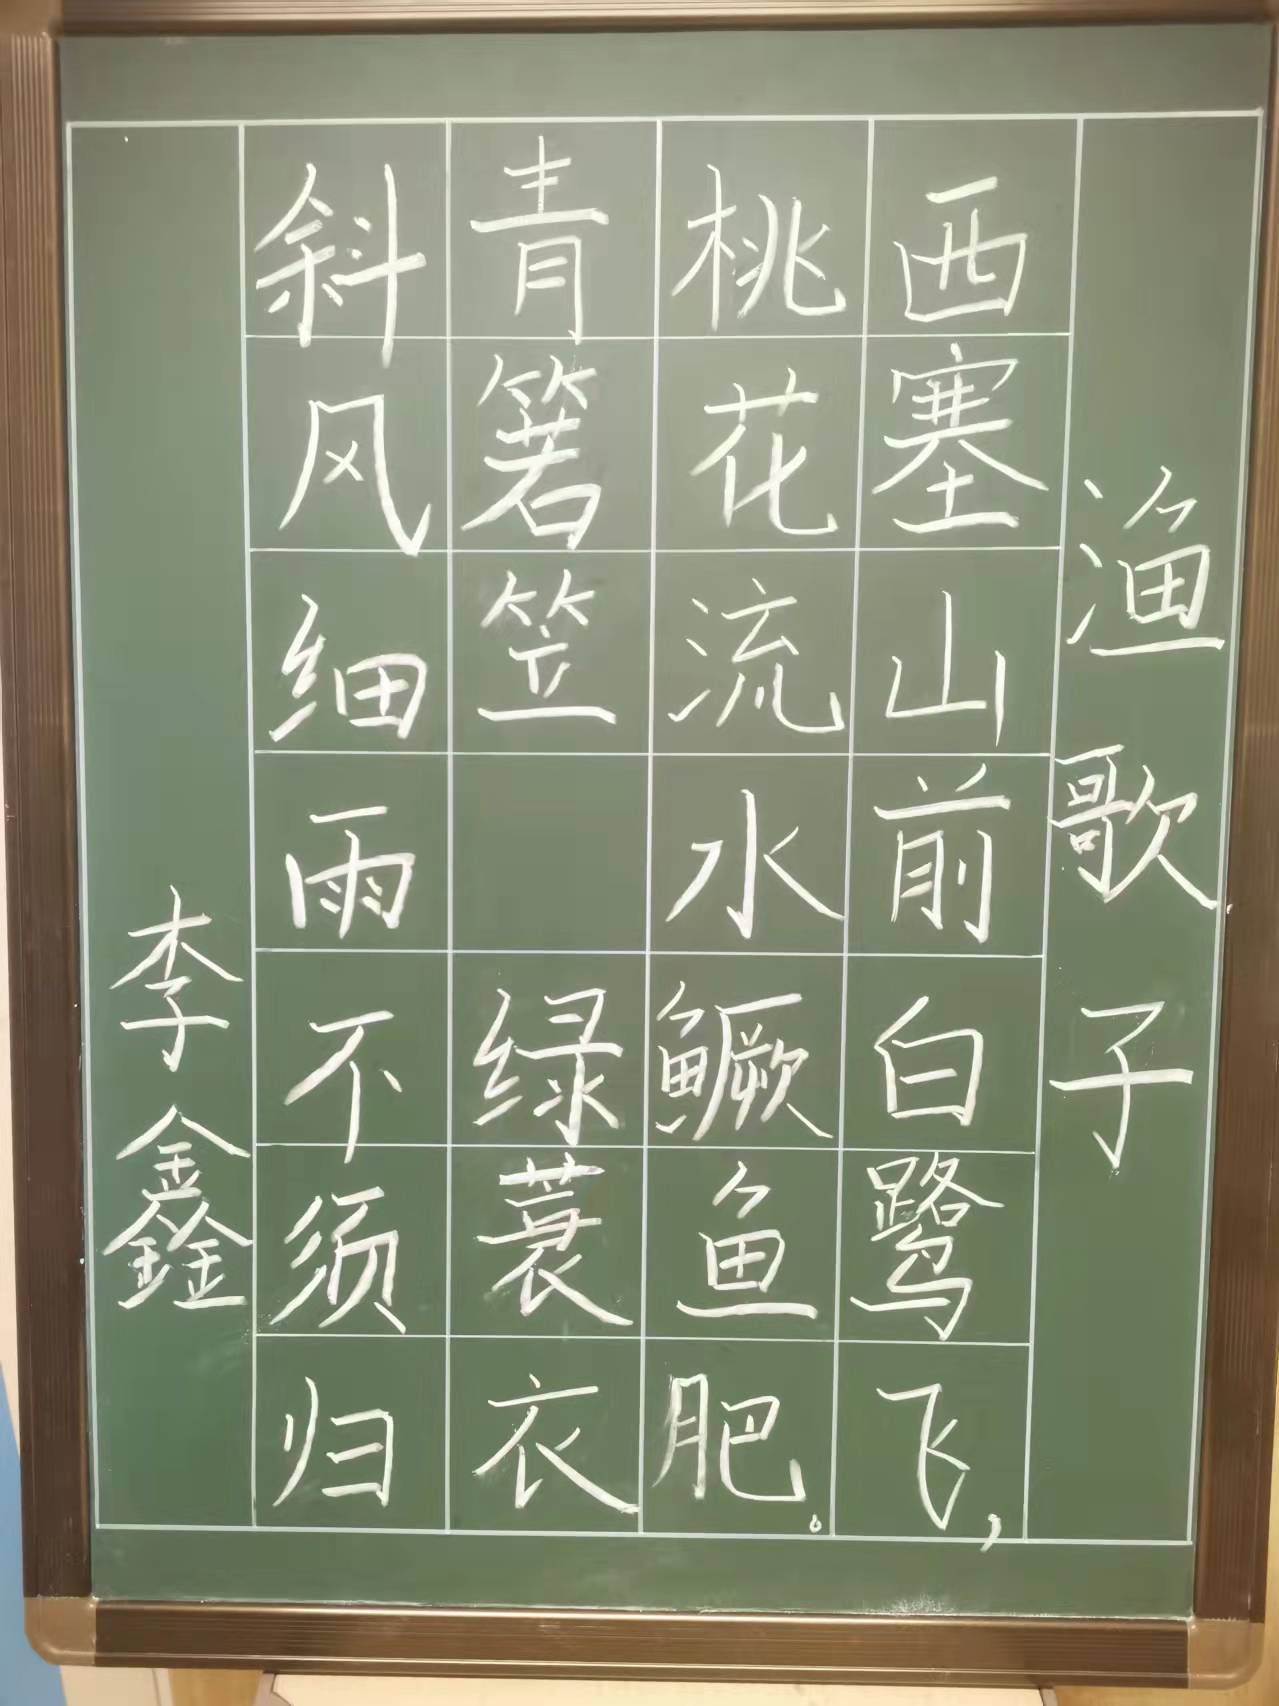 渔歌子
西塞山前白鹭飞，
桃花流水鳜鱼肥。
青箬笠 绿蓑衣
斜风细雨不须归
李鑫